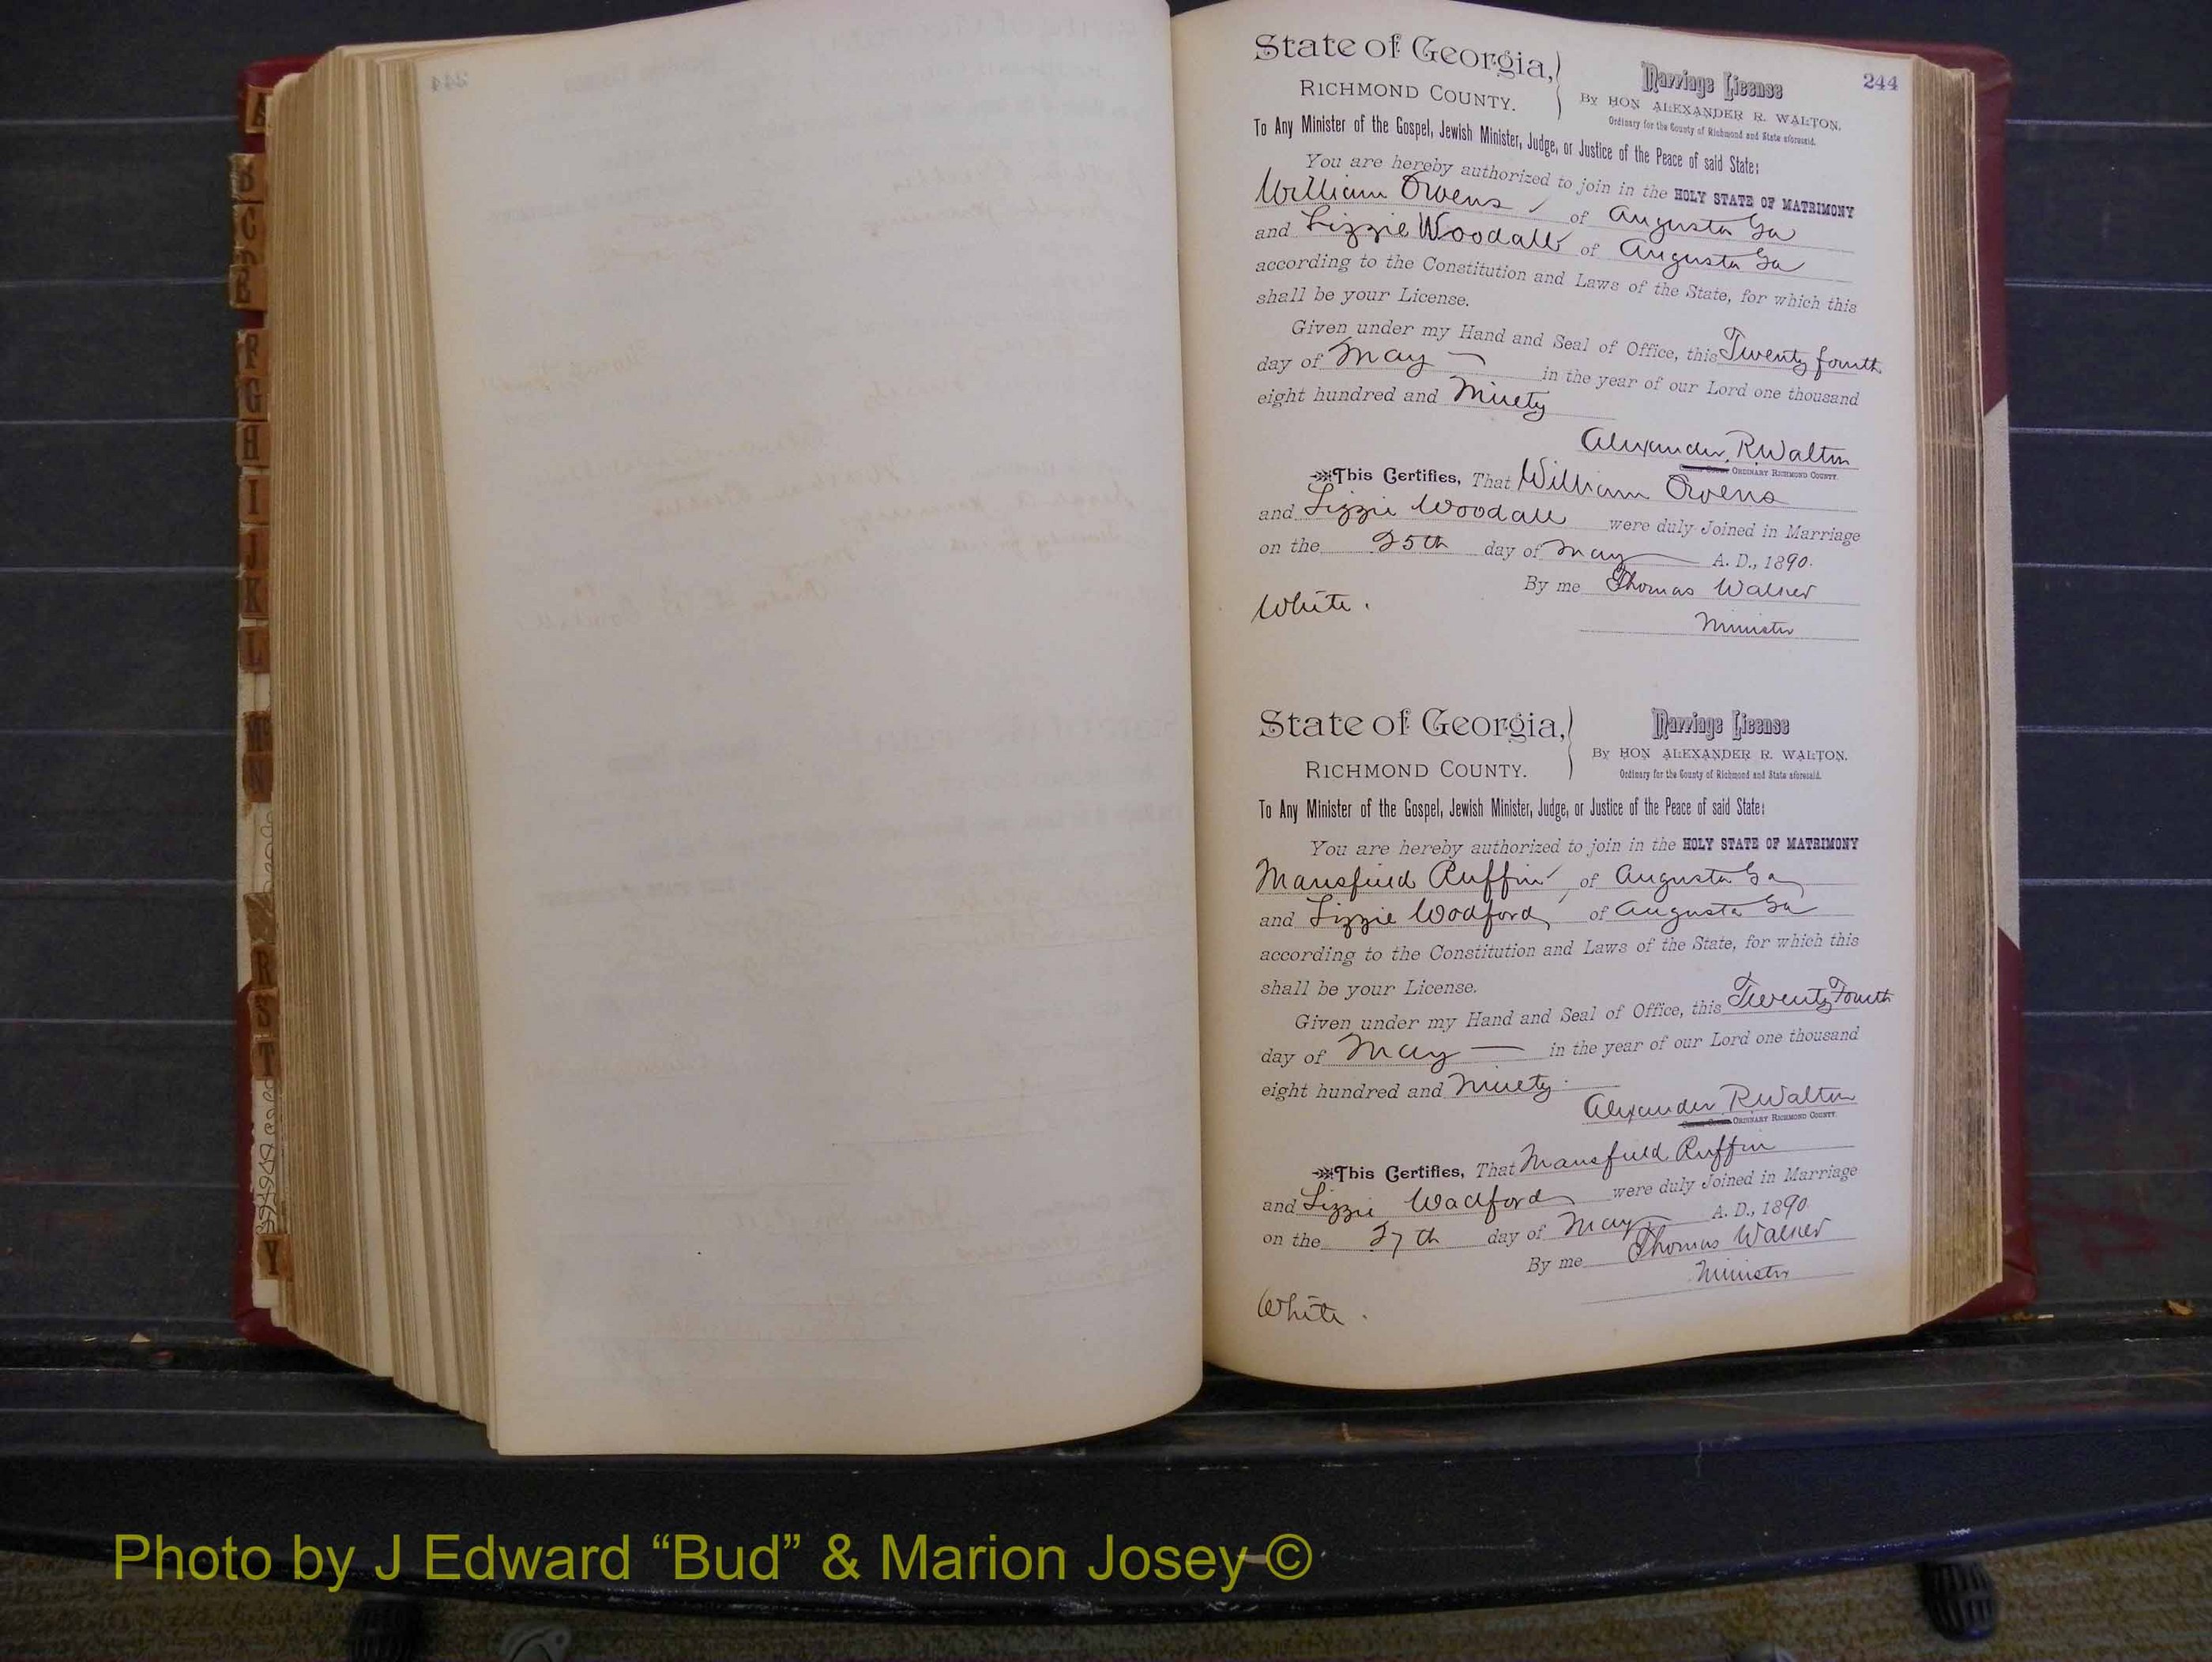 244
State of Georgia,
RICHMOND COUNTY.
Marriage License
By HON ALEXANDER R. WALTON,
Ordinary for the County of Richmond and State aforesaid.
To Any Minister of the Gospel, Jewish Minister, Judge, or Justice of the Peace of said State:
You are hereby authorized to join in the HOLY STATE OF MATRIMONY
William Owens of Augusta Ga
and Lizzie Woodall of Augusta Ga
according to the Constitution and Laws of the State, for which this
shall be your License.
Given under my Hand and Seal of Office, this Twenty fourth
day of May in the year of our Lord one thousand
eight hundred and Ninety
Alexander R Walton
ORDINARY RICHMOND COUNTY.
This Certifies, That William Owens
and Lizzie Woodall were duly Joined in Marriage
on the 25th day of May A. D., 1890.
By me Thomas Walker
White. Minister
State of Georgia,
RICHMOND COUNTY.
Marriage License
By HON ALEXANDER R. WALTON,
Ordinary for the County of Richmond and State aforesaid.
To Any Minister of the Gospel, Jewish Minister, Judge, or Justice of the Peace of said State:
You are hereby authorized to join in the HOLY STATE OF MATRIMONY
Mansfield Ruffin, of Augusta Ga
and Lizzie Wodford of Augusta Ga
according to the Constitution and Laws of the State, for which this
shall be your License.
Given under my Hand and Seal of Office, this Twenty Fourth
day of May in the year of our Lord one thousand
eight hundred and Ninety.
Alexander R Walton
ORDINARY RICHMOND COUNTY.
This Certifies, That Mansfield Ruffin
and Lizzie Wadford were duly Joined in Marriage
on the 27th day of May A. D., 1890.
By me Thomas Walker
Minister
White.
B
C
F
G
H
I
J
K
L
Mc
N
R
S
T
Y
Photo by J Edward “Bud” & Marion Josey ©